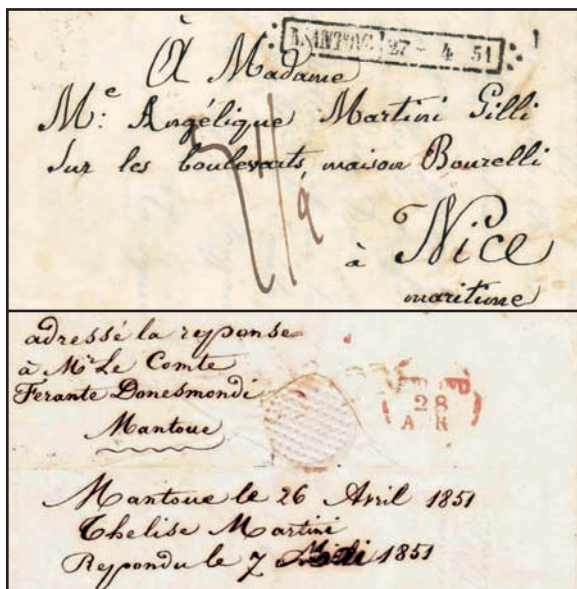 MANTOVA 27 4 51
À Madame
Mᵉ: Angélique Martini Gilli
Sur les boulevarts maison Bourelli
à Nice
maritime
adressé la reponse
à Mʳ Le Comte
Ferante Donesmondi
Mantoue
28
Mantoue le 26 Avril 1851
Thelise Martini
Repondu le 7 1851